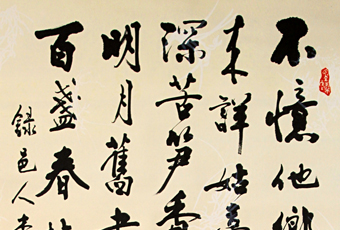 不憶他鄉
未詳姑
深苦笋香
明月舊
百盞春
錄邑人